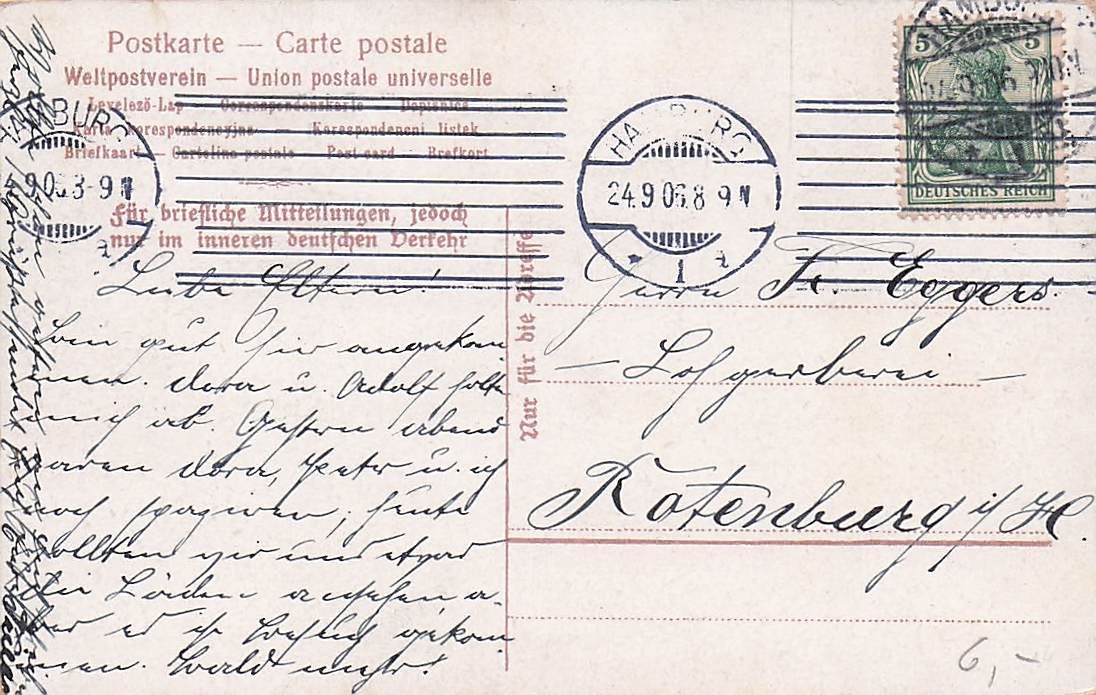 Postkarte — Carte postale
Weltpostverein — Union postale universelle
Levelező-Lap — Correspondenzkarte — Dopisnice
Karta korespondencyjna — Korespondencni listek
Briefkaart — Cartolina postale — Post card — Brefkort
Für briefliche Mitteilungen, jedoch
nur im inneren deutschen Verkehr
Nur für die Adresse
HAMBURG
9.06.8-9N
HAMBURG
24.9.06.8-9N
* 1 t
HAMBURG
5 5
DEUTSCHES REICH
Liebe Eltern!
Bin gut hier angekom
men. Dora u. Adolf holte
mich ab. Gestern abend
waren Dora, Peter u. ich
noch spaziren, heute
wollten wir uns etwas
die Läden ansehen a-
ber es ist Besuch gekom
men. Bald mehr!
Herrn Fr. Eggers.
— Lohgerberei —
Rotenburg i/H
6,-